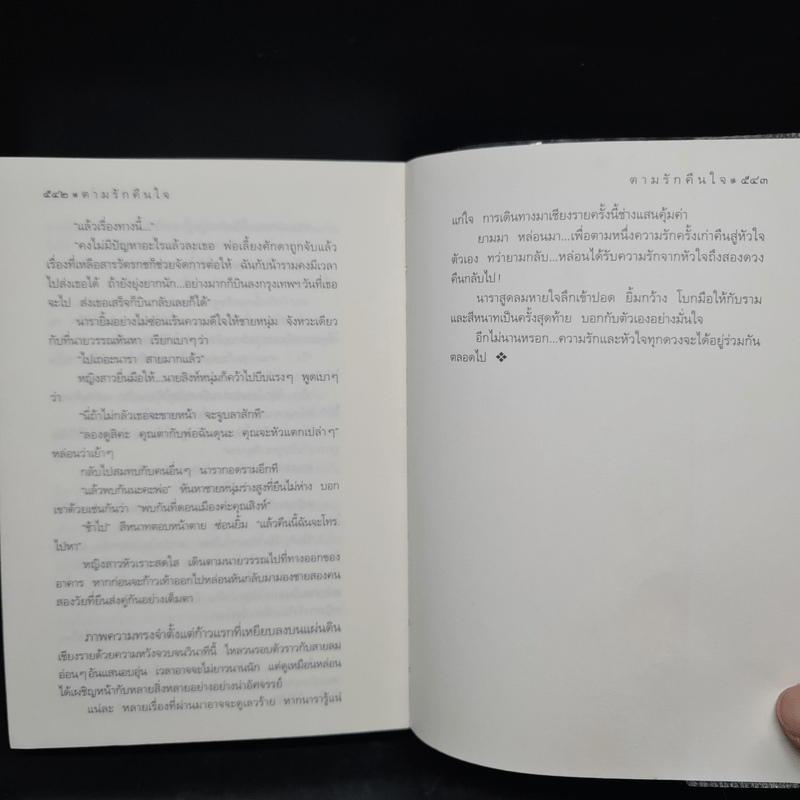 ๕๔๒ ๑ ตามรักคืนใจ
"แล้วเรื่องทางนี้..."
"คงไม่มีปัญหาอะไรแล้วละเธอ พ่อเลี้ยงศักดาถูกจับแล้ว
เรื่องที่เหลือสารวัตรกชก็ช่วยจัดการต่อให้ ฉันกับน้ารามคงมีเวลา
ไปส่งเธอได้ ถ้ายังยุ่งยากนัก...อย่างมากก็บินลงกรุงเทพฯ วันที่เธอ
จะไป ส่งเธอเสร็จก็บินกลับเลยก็ได้"
นารายิ้มอย่างไม่ซ่อนเร้นความดีใจให้ชายหนุ่ม จังหวะเดียว
กับที่นายวรรณหันมา เรียกเบาๆ ว่า
"ไปเถอะนารา สายมากแล้ว"
หญิงสาวยื่นมือให้...นายสิงห์หนุ่มก็คว้าไปบีบแรงๆ พูดเบาๆ
ว่า
"นี่ถ้าไม่กลัวเธอจะขายหน้า จะจูบลาสักที"
"ลองดูสิคะ คุณตากับพ่อฉันดุนะ คุณจะหัวแตกเปล่าๆ"
หล่อนว่าเย้าๆ
กลับไปสมทบกับคนอื่นๆ นารากอดรามอีกที
"แล้วพบกันนะคะพ่อ" หันหาชายหนุ่มร่างสูงที่ยืนไม่ห่าง บอก
เขาด้วยเช่นกันว่า "พบกันที่ดอนเมืองค่ะคุณสิงห์"
"ช้าไป" สีหนาทตอบหน้าตาย ซ่อนยิ้ม "แล้วคืนนี้ฉันจะโทร.
ไปหา"
หญิงสาวหัวเราะสดใส เดินตามนายวรรณไปที่ทางออกของ
อาคาร หากก่อนจะก้าวเท้าออกไปหล่อนหันกลับมามองชายสองคน
สองวัยที่ยืนส่งคู่กันอย่างเต็มตา
ภาพความทรงจำตั้งแต่ก้าวแรกที่เหยียบลงบนแผ่นดิน
เชียงรายด้วยความหวังจวบจนวินาทีนี้ ไหลวนรอบตัวราวกับสายลม
อ่อนๆ อันแสนอบอุ่น เวลาอาจจะไม่ยาวนานนัก แต่ดูเหมือนหล่อน
ได้เผชิญหน้ากับหลายสิ่งหลายอย่างอย่างน่าอัศจรรย์
แน่ละ หลายเรื่องที่ผ่านมาอาจจะดูเลวร้าย หากนารารู้แน่
ตามรักคืนใจ ๑ ๕๔๓
แก่ใจ การเดินทางมาเชียงรายครั้งนี้ช่างแสนคุ้มค่า
ยามมา หล่อนมา...เพื่อตามหนึ่งความรักครั้งเก่าคืนสู่หัวใจ
ตัวเอง ทว่ายามกลับ...หล่อนได้รับความรักจากหัวใจถึงสองดวง
คืนกลับไป!
นาราสูดลมหายใจลึกเข้าปอด ยิ้มกว้าง โบกมือให้กับราม
และสีหนาทเป็นครั้งสุดท้าย บอกกับตัวเองอย่างมั่นใจ
อีกไม่นานหรอก...ความรักและหัวใจทุกดวงจะได้อยู่ร่วมกัน
ตลอดไป ❖